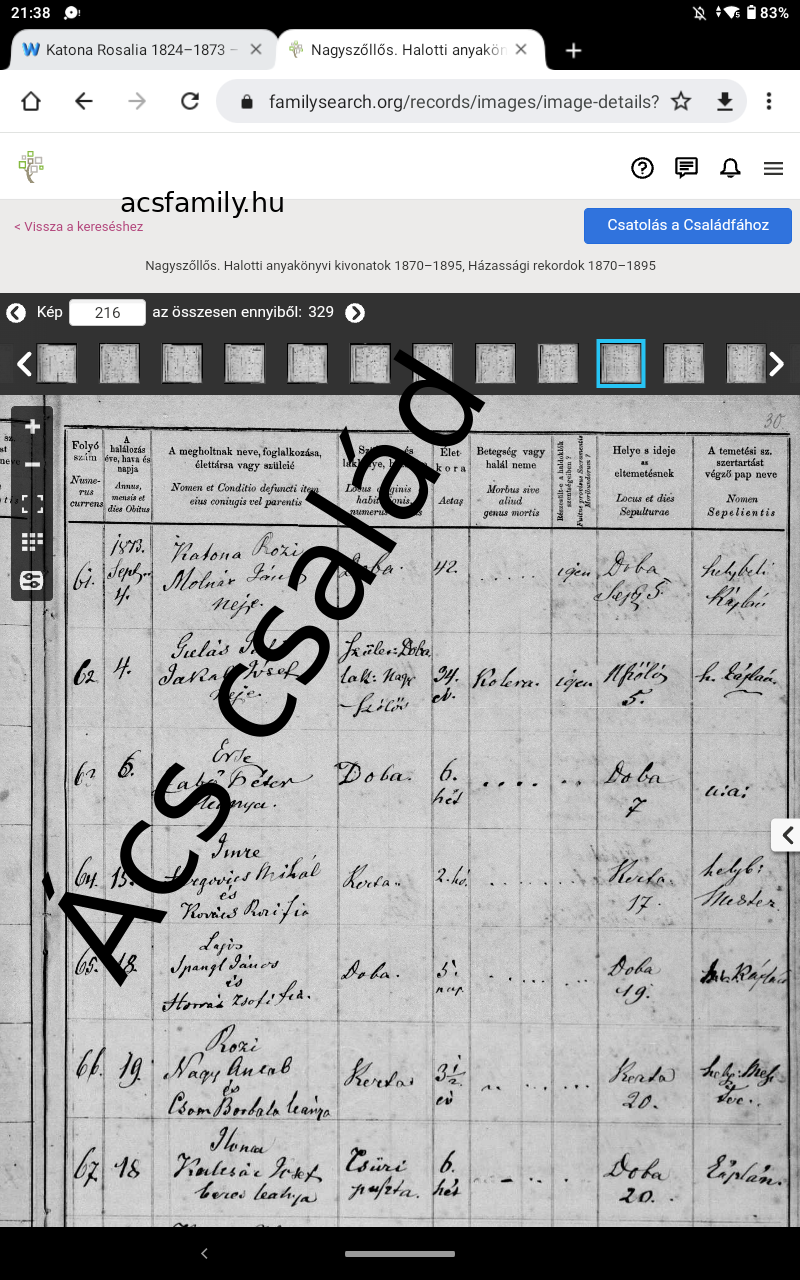 21:38
83%
Katona Rosalia 1824–1873 –
Nagyszőllős. Halotti anyakön
familysearch.org/records/images/image-details?
acsfamily.hu
< Vissza a kereséshez
Csatolás a Családfához
Nagyszőllős. Halotti anyakönyvi kivonatok 1870–1895, Házassági rekordok 1870–1895
Kép 216 az összesen ennyiből: 329
Ács család
30.
Folyó szám
Numerus currens
A halálozás éve, hava és napja
Annus, mensis et dies Obitus
A megholtnak neve, foglalkozása, élettársa vagy szüleié
Nomen et Conditio defuncti item eius coniugis vel parentis
Élet- kora
Aetas
Betegség vagy halál neme
Morbus sive aliud genus mortis
Helye s ideje az eltemetésnek
Locus et dies Sepulturae
A temetési sz. szertartást végző pap neve
Nomen Sepelientis
61. 1873. Septbr 4. Katona Rozi Molnár János neje. Doba. 42. igen Doba Sept 5. helybeli káplán
62 4. József neje. Szület: Doba lak: Nagy Szőlős 34. év. Kolera. igen 5. h. káplán.
6. Erse Péter leánya. Doba. 6. hét Doba 7 u.a:
64. 15. Imre Mihál és Kovács Rozi fia Kerta. 2. hó. Kerta 17. helyb: Mester
65. 18. Lajos Spangl János és Horvát Zsofi fia. Doba. 5. nap Doba 19. Káplán
66. 19. Rozi Nagy és Csom Borbala leánya Kerta 3½ év Kerta 20.
67. 18 Ilona József beres leánya Csüri puszta. 6. hét Doba 20. Káplán.